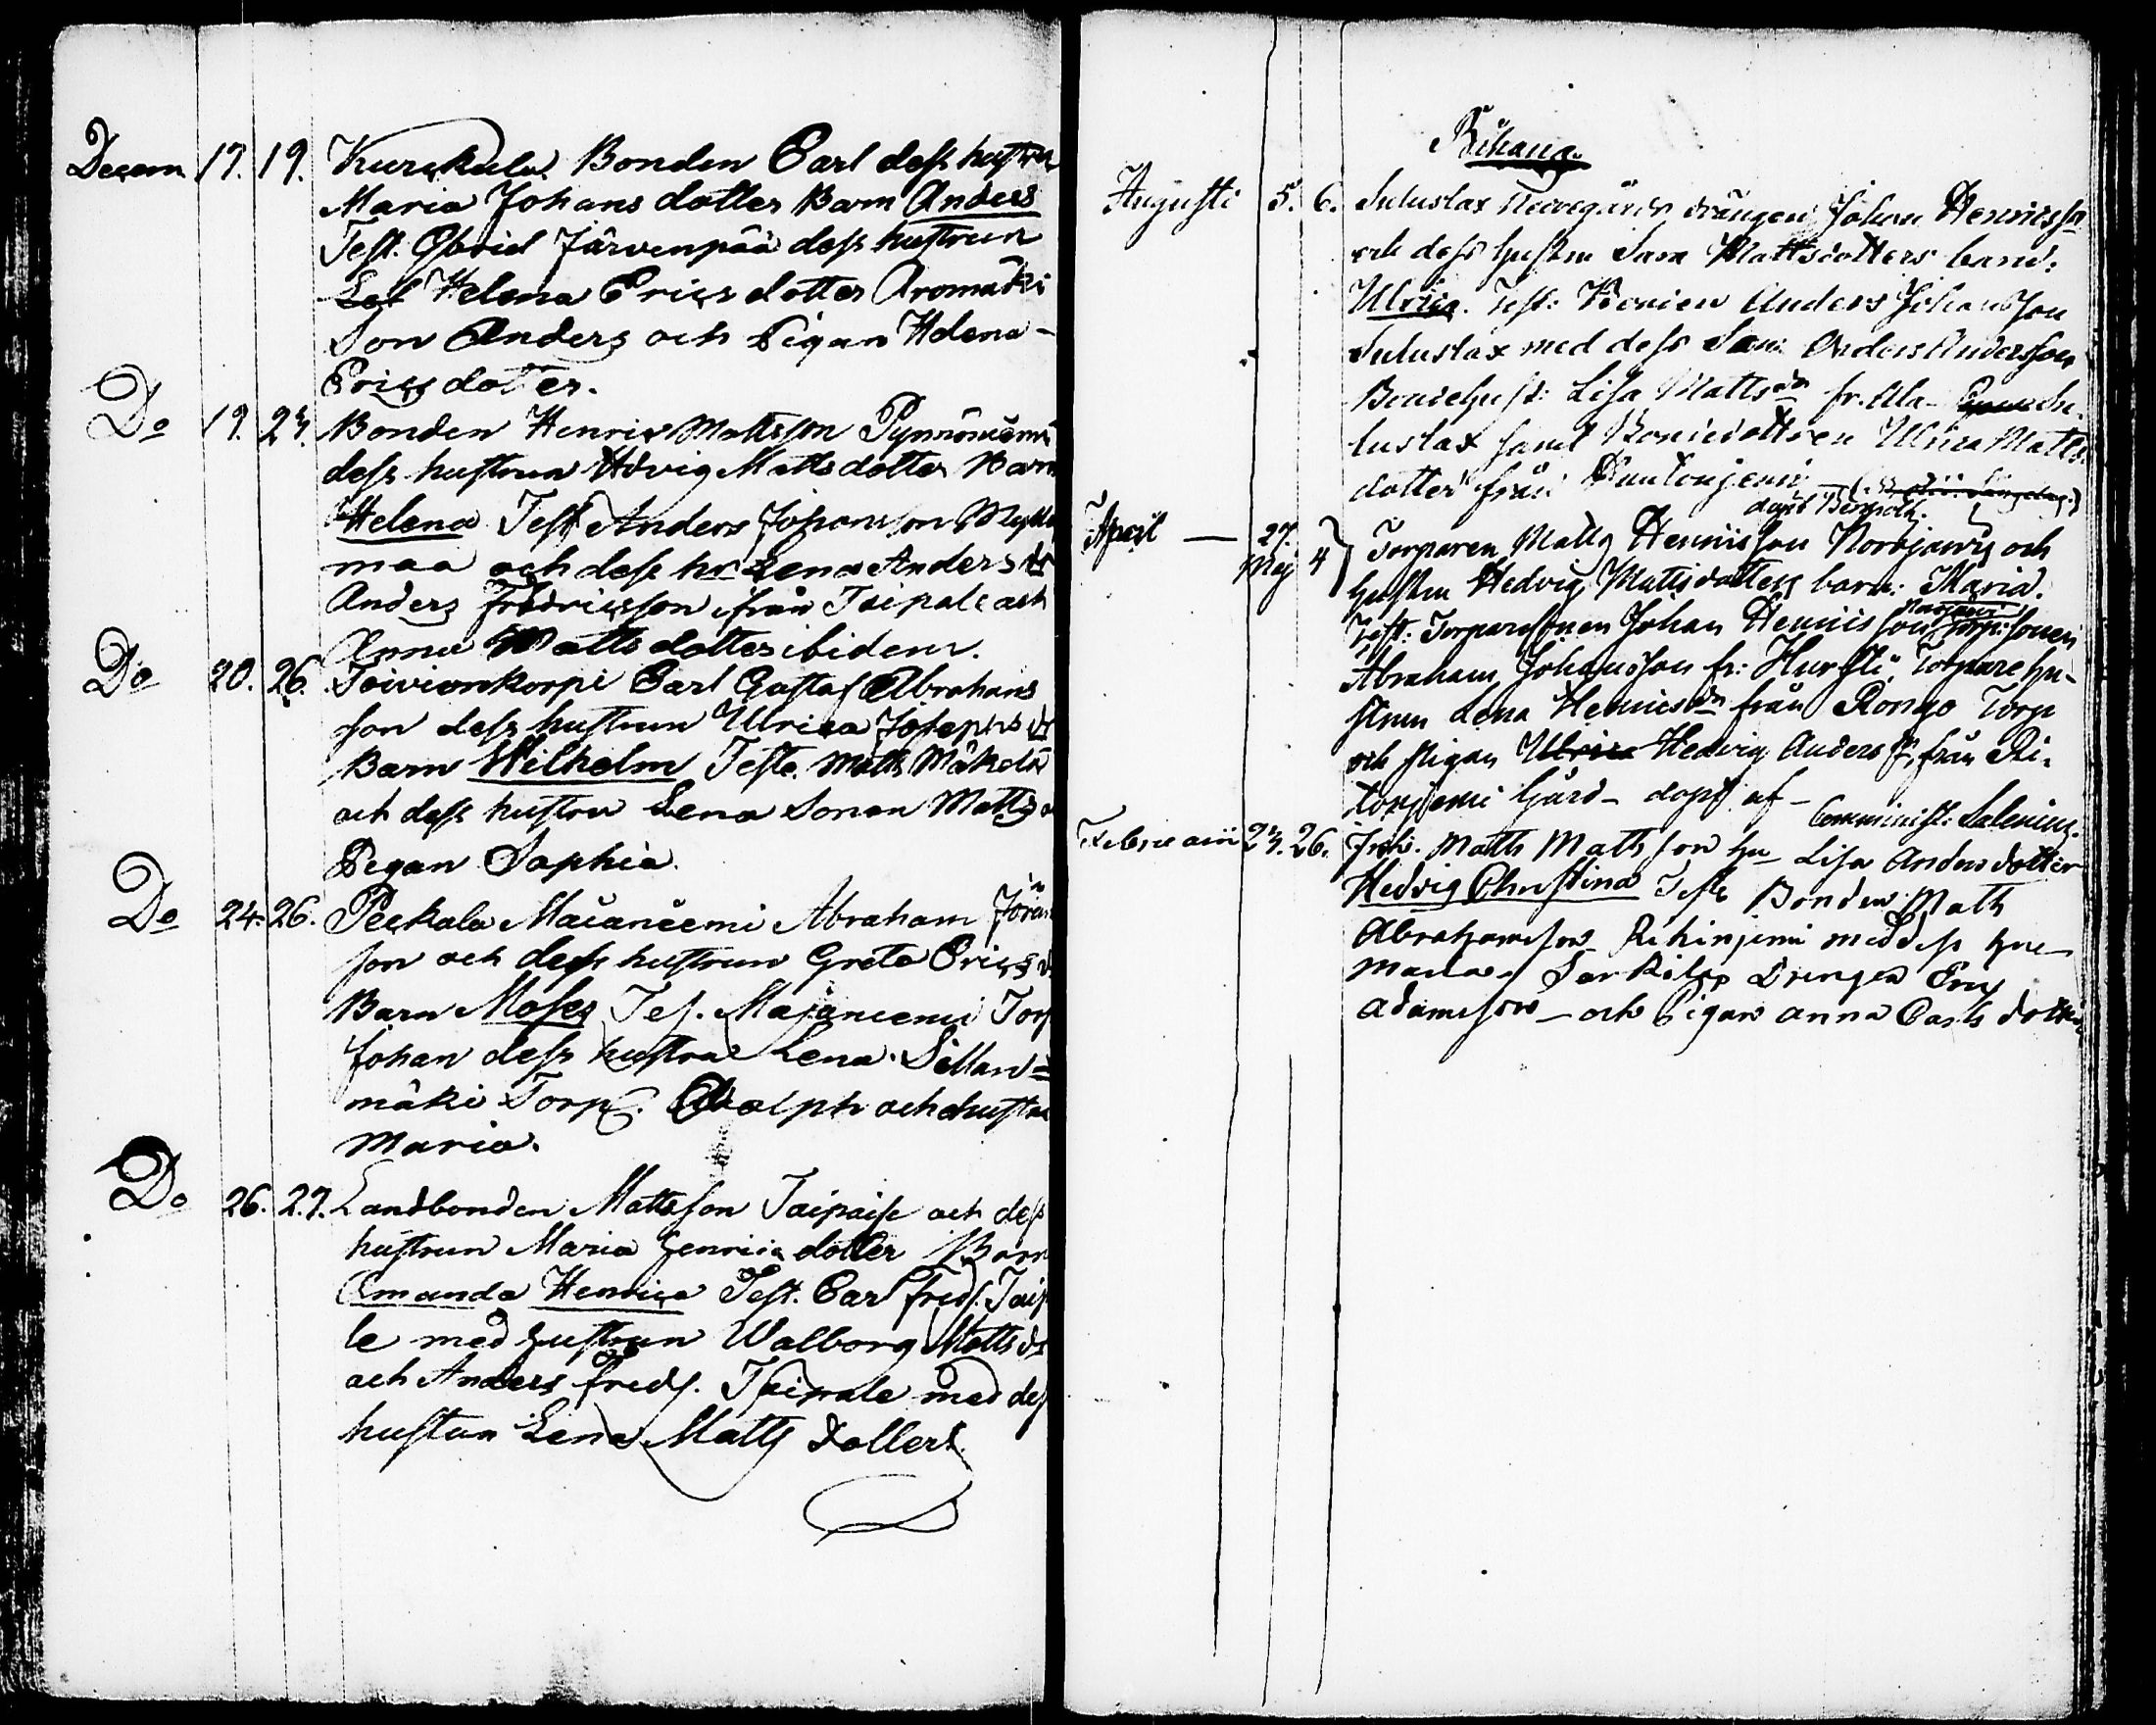 Decem 17. 19. Kurckula Bonden Carl dess hustru
Maria Johans dotter Barn Anders
Test. Gbriel Järvenpää dess hustrun
Helena Erics dotter Aromäki
Son Anders och Pigan Helena
Erics dotter.
Do 19. 23. Bonden Henric Mattsson
dess hustrun Hdvig Matts dotter Barn
Helena Test Anders Johansson
maa och dess hr Lena Anders dr
Anders Fredricsson ifrån Taipale och
Anna Matts dotter ibidem.
Do 20. 26. Toivionkorpi Carl Gustaf Abrahans
son dess hustrun Ulrica Josephs dr
Barn Wilhelm Teste. Matts Mäkelä
och dess hustru Lena Sonan Matts
Pegan Sophia.
Do 24. 26. Peckala Maianiemi Abraham
son och dess hustrun Greta Erics
Barn Moses Tes. Majaniemi Torp
Johan dess hustru Lena. Sillan=
mäki Torp. Adolph och hustru
Maria.
Do 26. 27. Landbonden Mattsson Taipaise och dess
hustrun Maria Henrics dotter Barn
Amanda Henrica Test. Carl Freds. Taipa
le med hustrun Walborg Matts dr
och Anders Freds. Taipale med dess
hustrun Lena Matts dotter
Bihang
Augusti 5. 6. Suluslax drängen Johan Henricsson
och dess hustru Sara Mattsdotters barn:
Ulrica. Test: Anders Johansson
Suluslax med dess Son: Anders Andersson
Bondehust: Lisa Matts dr fr. Ala- Su-
luslax samt Bondedottren Ulrica Matts
dotter från
döpt
April — 27. Maj 4 Torparen Matts Henricsson och
hustru Hedvig Mattsdotters barn: Maria.
Test: Torparesonen Johan Henricsson Torp: sonen
Abraham Johansson fr: Torpare hu-
strun Lena Henrics dr från Rongo Torp
och pigan Ulrica Hedvig Anders dr, från Ri-
Gård - döpt af -
Comminist: Salenius.
Februarii 23. 26. Matts Mattsson hu Lisa Anders dotter
Hedvig Christina Teste Bonden Matts
Abrahamsson med dess hu
Maria Drengen Eric
Adamsson - och Pigan Anna Carls dotter